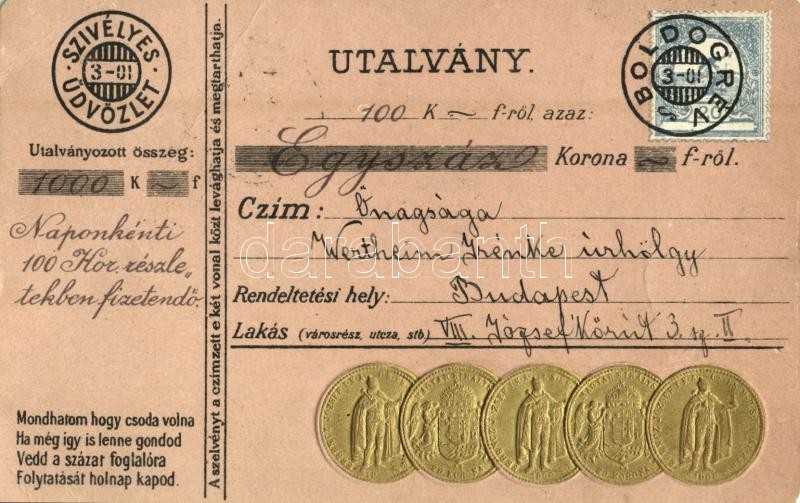 SZIVÉLYES
3-01
ÜDVÖZLET
Utalványozott összeg:
1000 K ~ f
Naponkénti
100 Kor. részle„
tekben fizetendő.
Mondhatom hogy csoda volna
Ha még így is lenne gondod
Vedd a százar foglalóra
Folytatását holnap kapod.
A szelvényt a czímzett e két vonal közt levághatja és megtarthatja.
UTALVÁNY.
BOLDOG
3-01
100 K ~ f-ről, azaz:
Egyszáz Korona ~ f-ről.
Czím: Őnagsága
Wertheim Irénke úrhölgy
Rendeltetési hely: Budapest
Lakás (városrész, utcza, stb) VIII. József Körút 3. sz. II.
darabanth